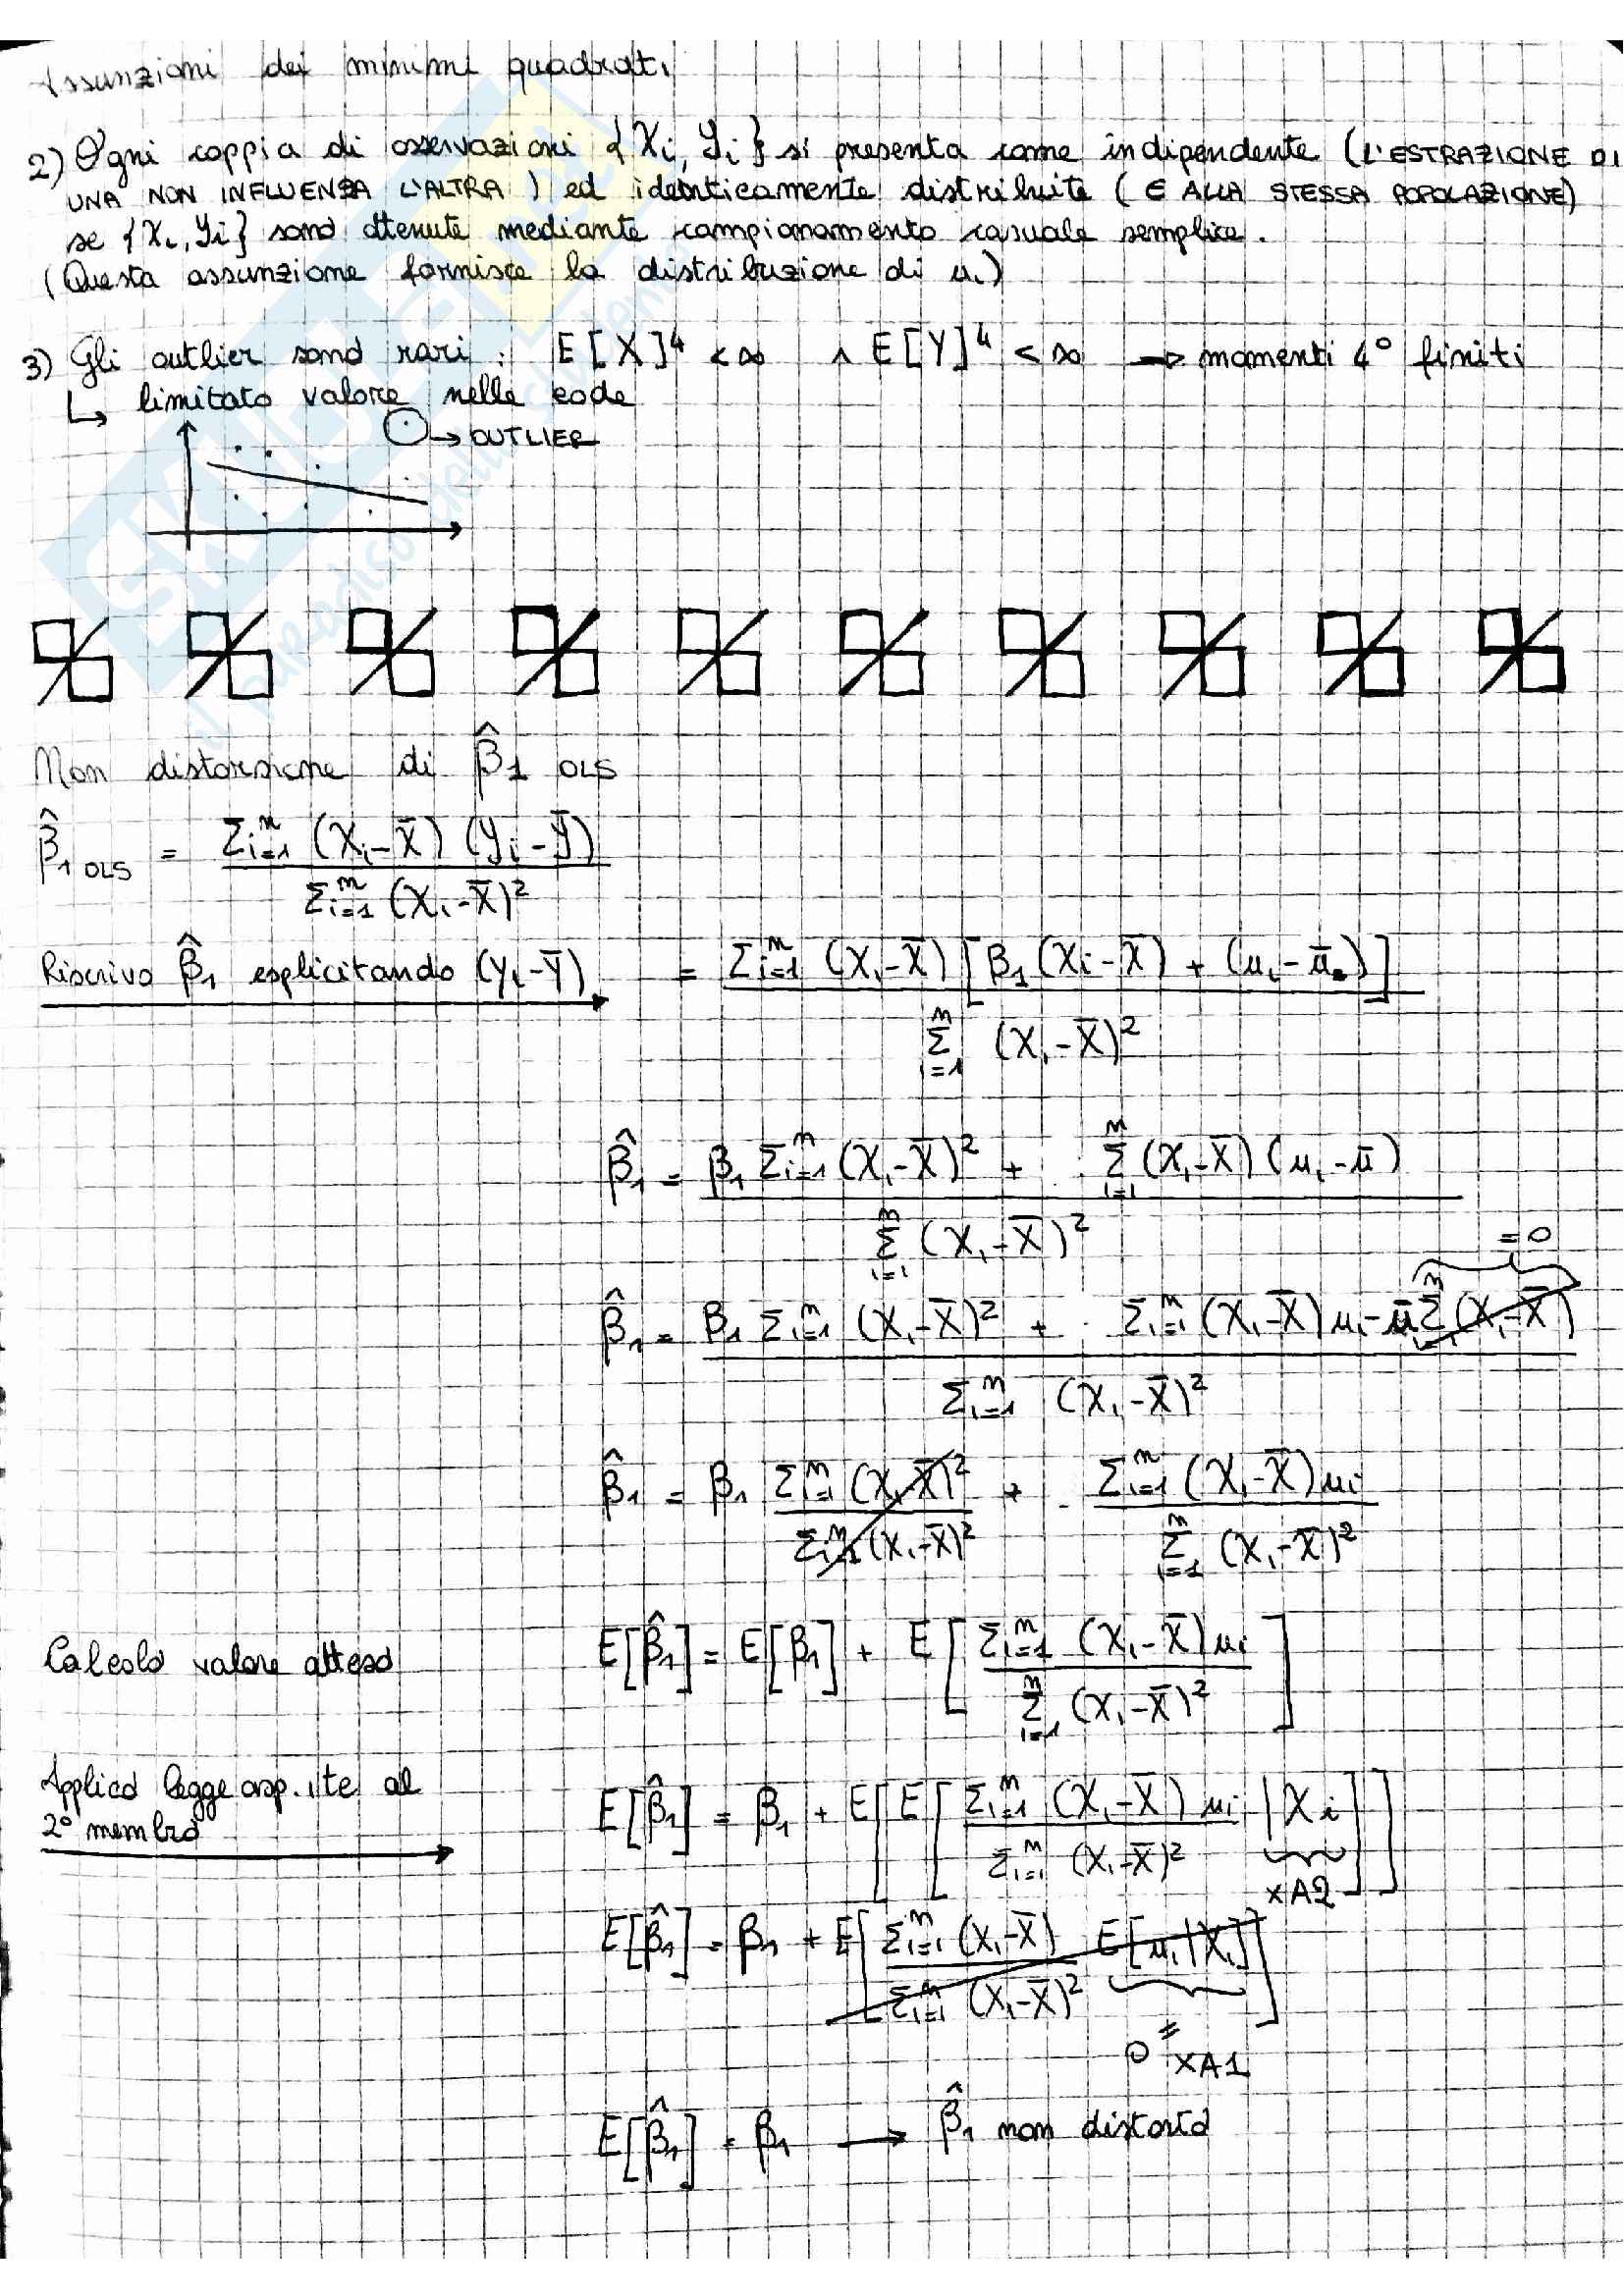 Assunzioni dei minimi quadrati
2) Ogni coppia di osservazioni {Xi, Yi} si presenta come indipendente (L'ESTRAZIONE DI
UNA NON INFLUENZA L'ALTRA) ed identicamente distribuite (E ALLA STESSA POPOLAZIONE)
se {Xi, Yi} sono ottenute mediante campionamento casuale semplice.
(Questa assunzione fornisce la distribuzione di ui)
3) Gli outlier sono rari: E[X]⁴ < ∞ ∧ E[Y]⁴ < ∞ → momenti 4° finiti
↳ limitato valore nelle code
→ OUTLIER
Non distorsione di β̂1 OLS
β̂1 OLS = Σi=1^n (Xi-X̄) (Yi-Ȳ) / Σi=1^n (Xi-X̄)²
Riscrivo β̂1 esplicitando (Yi-Ȳ) = Σi=1^n (Xi-X̄) [β1 (Xi-X̄) + (ui-ū)] / Σi=1^n (Xi-X̄)²
β̂1 = β1 Σi=1^n (Xi-X̄)² + Σi=1^n (Xi-X̄) (ui-ū) / Σi=1^n (Xi-X̄)²
=0
β̂1 = β1 Σi=1^n (Xi-X̄)² + Σi=1^n (Xi-X̄) ui - ū Σi=1^n (Xi-X̄) / Σi=1^n (Xi-X̄)²
β̂1 = β1 Σi=1^n (Xi-X̄)² / Σi=1^n (Xi-X̄)² + Σi=1^n (Xi-X̄) ui / Σi=1^n (Xi-X̄)²
Calcolo valore atteso E[β̂1] = E[β1] + E[Σi=1^n (Xi-X̄) ui / Σi=1^n (Xi-X̄)²]
Applico legge asp. ite al
2° membro E[β̂1] = β1 + E[E[Σi=1^n (Xi-X̄) ui / Σi=1^n (Xi-X̄)² | Xi]]
xA2
E[β̂1] = β1 + E[Σi=1^n (Xi-X̄) / Σi=1^n (Xi-X̄)² E[ui|Xi]]
0 = xA1
E[β̂1] = β1 → β̂1 non distorto